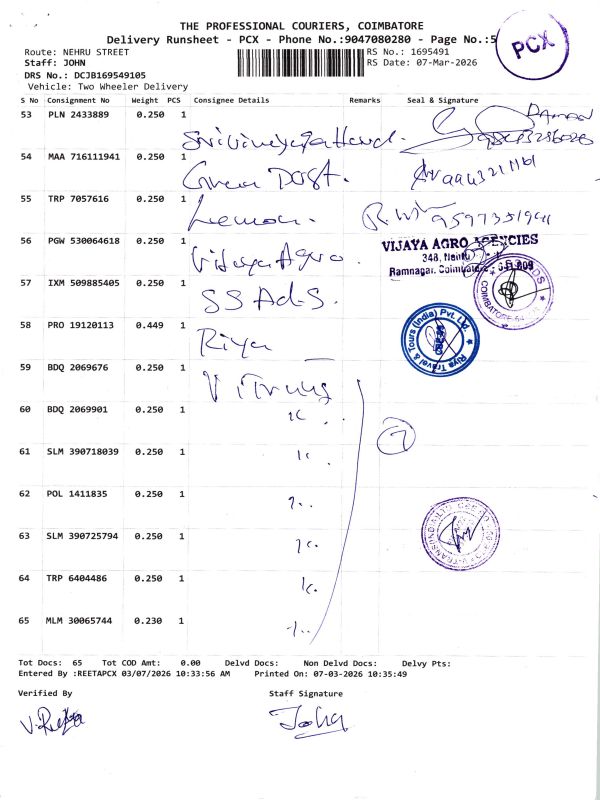 THE PROFESSIONAL COURIERS, COIMBATORE
Delivery Runsheet - PCX - Phone No.:9047080280 - Page No.:5
PCX
Route: NEHRU STREET
RS No.: 1695491
Staff: JOHN
RS Date: 07-Mar-2026
DRS No.: DCJB169549105
Vehicle: Two Wheeler Delivery
S No Consignment No Weight PCS Consignee Details Remarks Seal & Signature
53 PLN 2433889 0.250 1
54 MAA 716111941 0.250 1
55 TRP 7057616 0.250 1
Lemon. 9597351941
56 PGW 530064618 0.250 1
Vijaya Agro.
VIJAYA AGRO AGENCIES
Ramnagar, Coimbatore
57 IXM 509885405 0.250 1
SS Ads.
58 PRO 19120113 0.449 1
Riya
Riya Travel & Tours (India) Pvt. Ltd.
59 BDQ 2069676 0.250 1
60 BDQ 2069901 0.250 1
7
61 SLM 390718039 0.250 1
62 POL 1411835 0.250 1
63 SLM 390725794 0.250 1
64 TRP 6404486 0.250 1
65 MLM 30065744 0.230 1
Tot Docs: 65 Tot COD Amt: 0.00 Delvd Docs: Non Delvd Docs: Delvy Pts:
Entered By :REETAPCX 03/07/2026 10:33:56 AM Printed On: 07-03-2026 10:35:49
Verified By Staff Signature
John